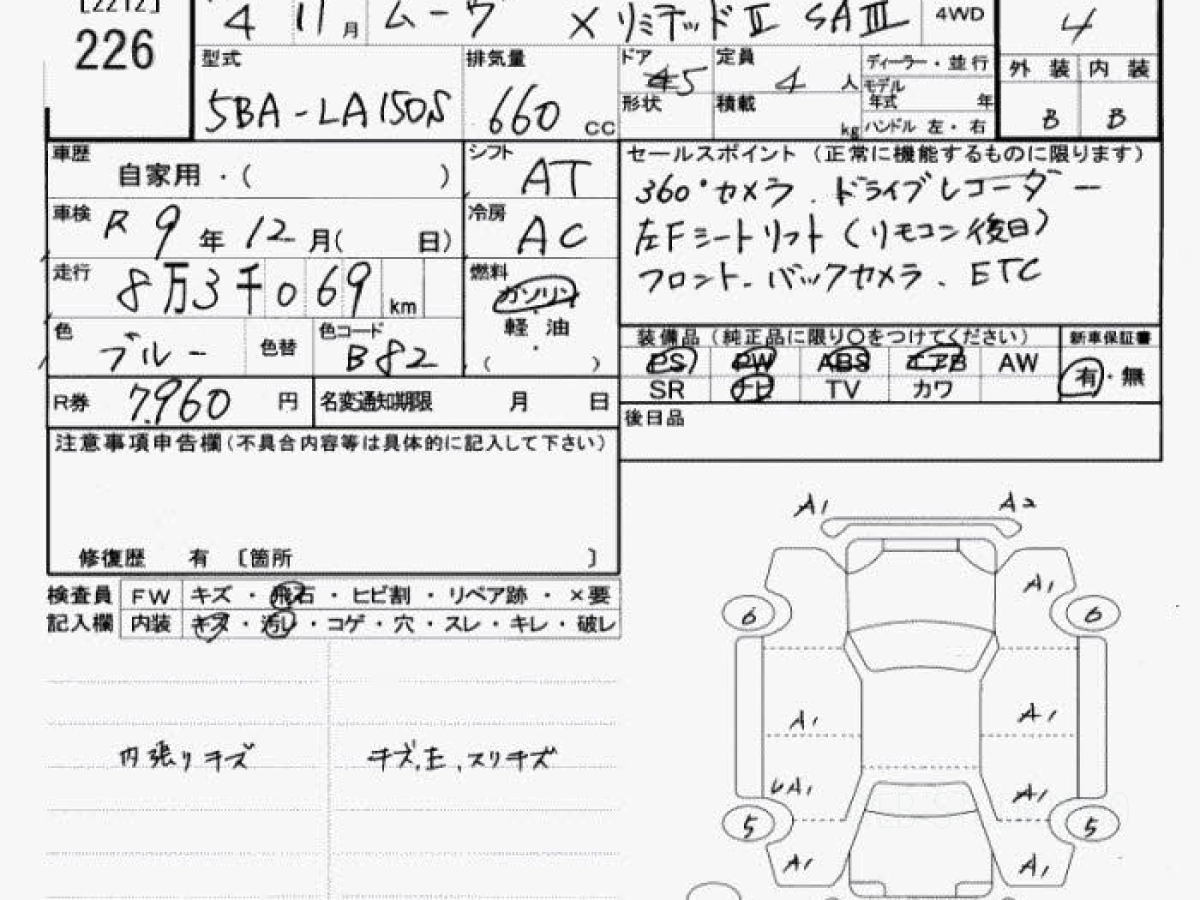 [2212]
226
4 11月 ムーヴ X リミテッドⅡ SAⅢ 4WD
4
型式
5BA-LA150S
排気量
660 cc
ドア 5
形状
定員 4 人
積載 kg
ディーラー・並行
モデル年式 年
ハンドル 左・右
外装 内装
B B
車歴
自家用・( )
シフト
AT
車検
R 9年 12月( 日)
冷房
AC
走行
8万3千069 km
燃料
ガソリン
軽・油
( ・ )
色
ブルー
色替
色コード
B82
R券 7,960 円
名変通知期限 月 日
セールスポイント (正常に機能するものに限ります)
360°カメラ. ドライブレコーダー
左Fシートリフト (リモコン後日)
フロント. バックカメラ. ETC
装備品 (純正品に限り○をつけてください)
PS PW ABS エアB AW
SR ナビ TV カワ
新車保証書
有・無
後日品
注意事項申告欄(不具合内容等は具体的に記入して下さい)
修復歴 有 〔箇所 〕
検査員 FW キズ・飛石・ヒビ割・リペア跡・×要
記入欄 内装 キズ・汚レ・コゲ・穴・スレ・キレ・破レ
内張りキズ
キズ.E.スリキズ
A1 A2
A1
6 6
A1 A1
UA1 A1
5 5
A1 A1